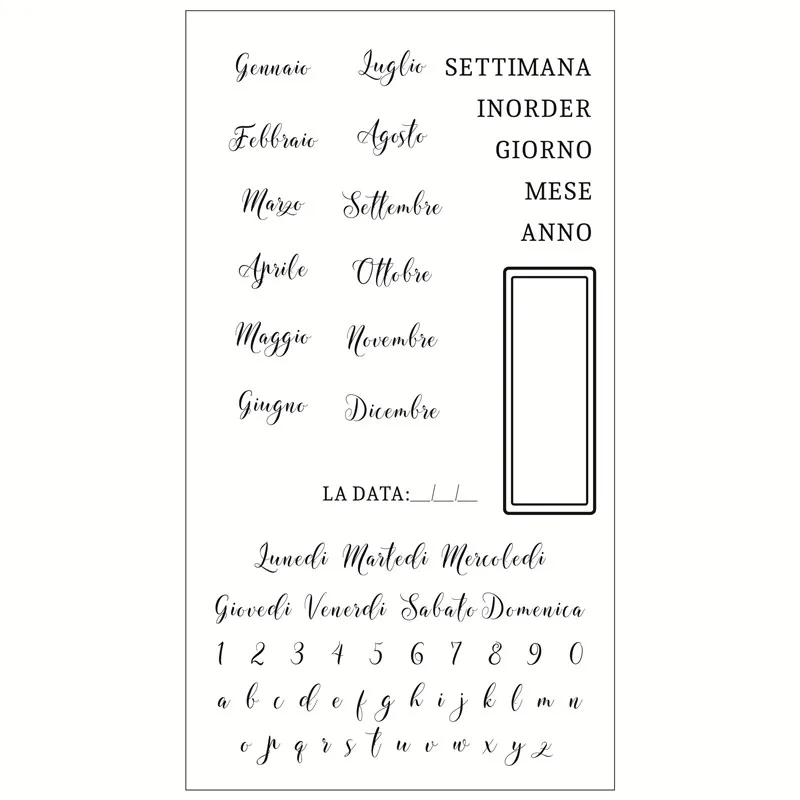 Gennaio
Febbraio
Marzo
Aprile
Maggio
Giugno
Luglio
Agosto
Settembre
Ottobre
Novembre
Dicembre
SETTIMANA
INORDER
GIORNO
MESE
ANNO
LA DATA:__/__/__
Lunedi Martedi Mercoledi
Giovedi Venerdi Sabato Domenica
1 2 3 4 5 6 7 8 9 0
a b c d e f g h i j k l m n
o p q r s t u v w x y z